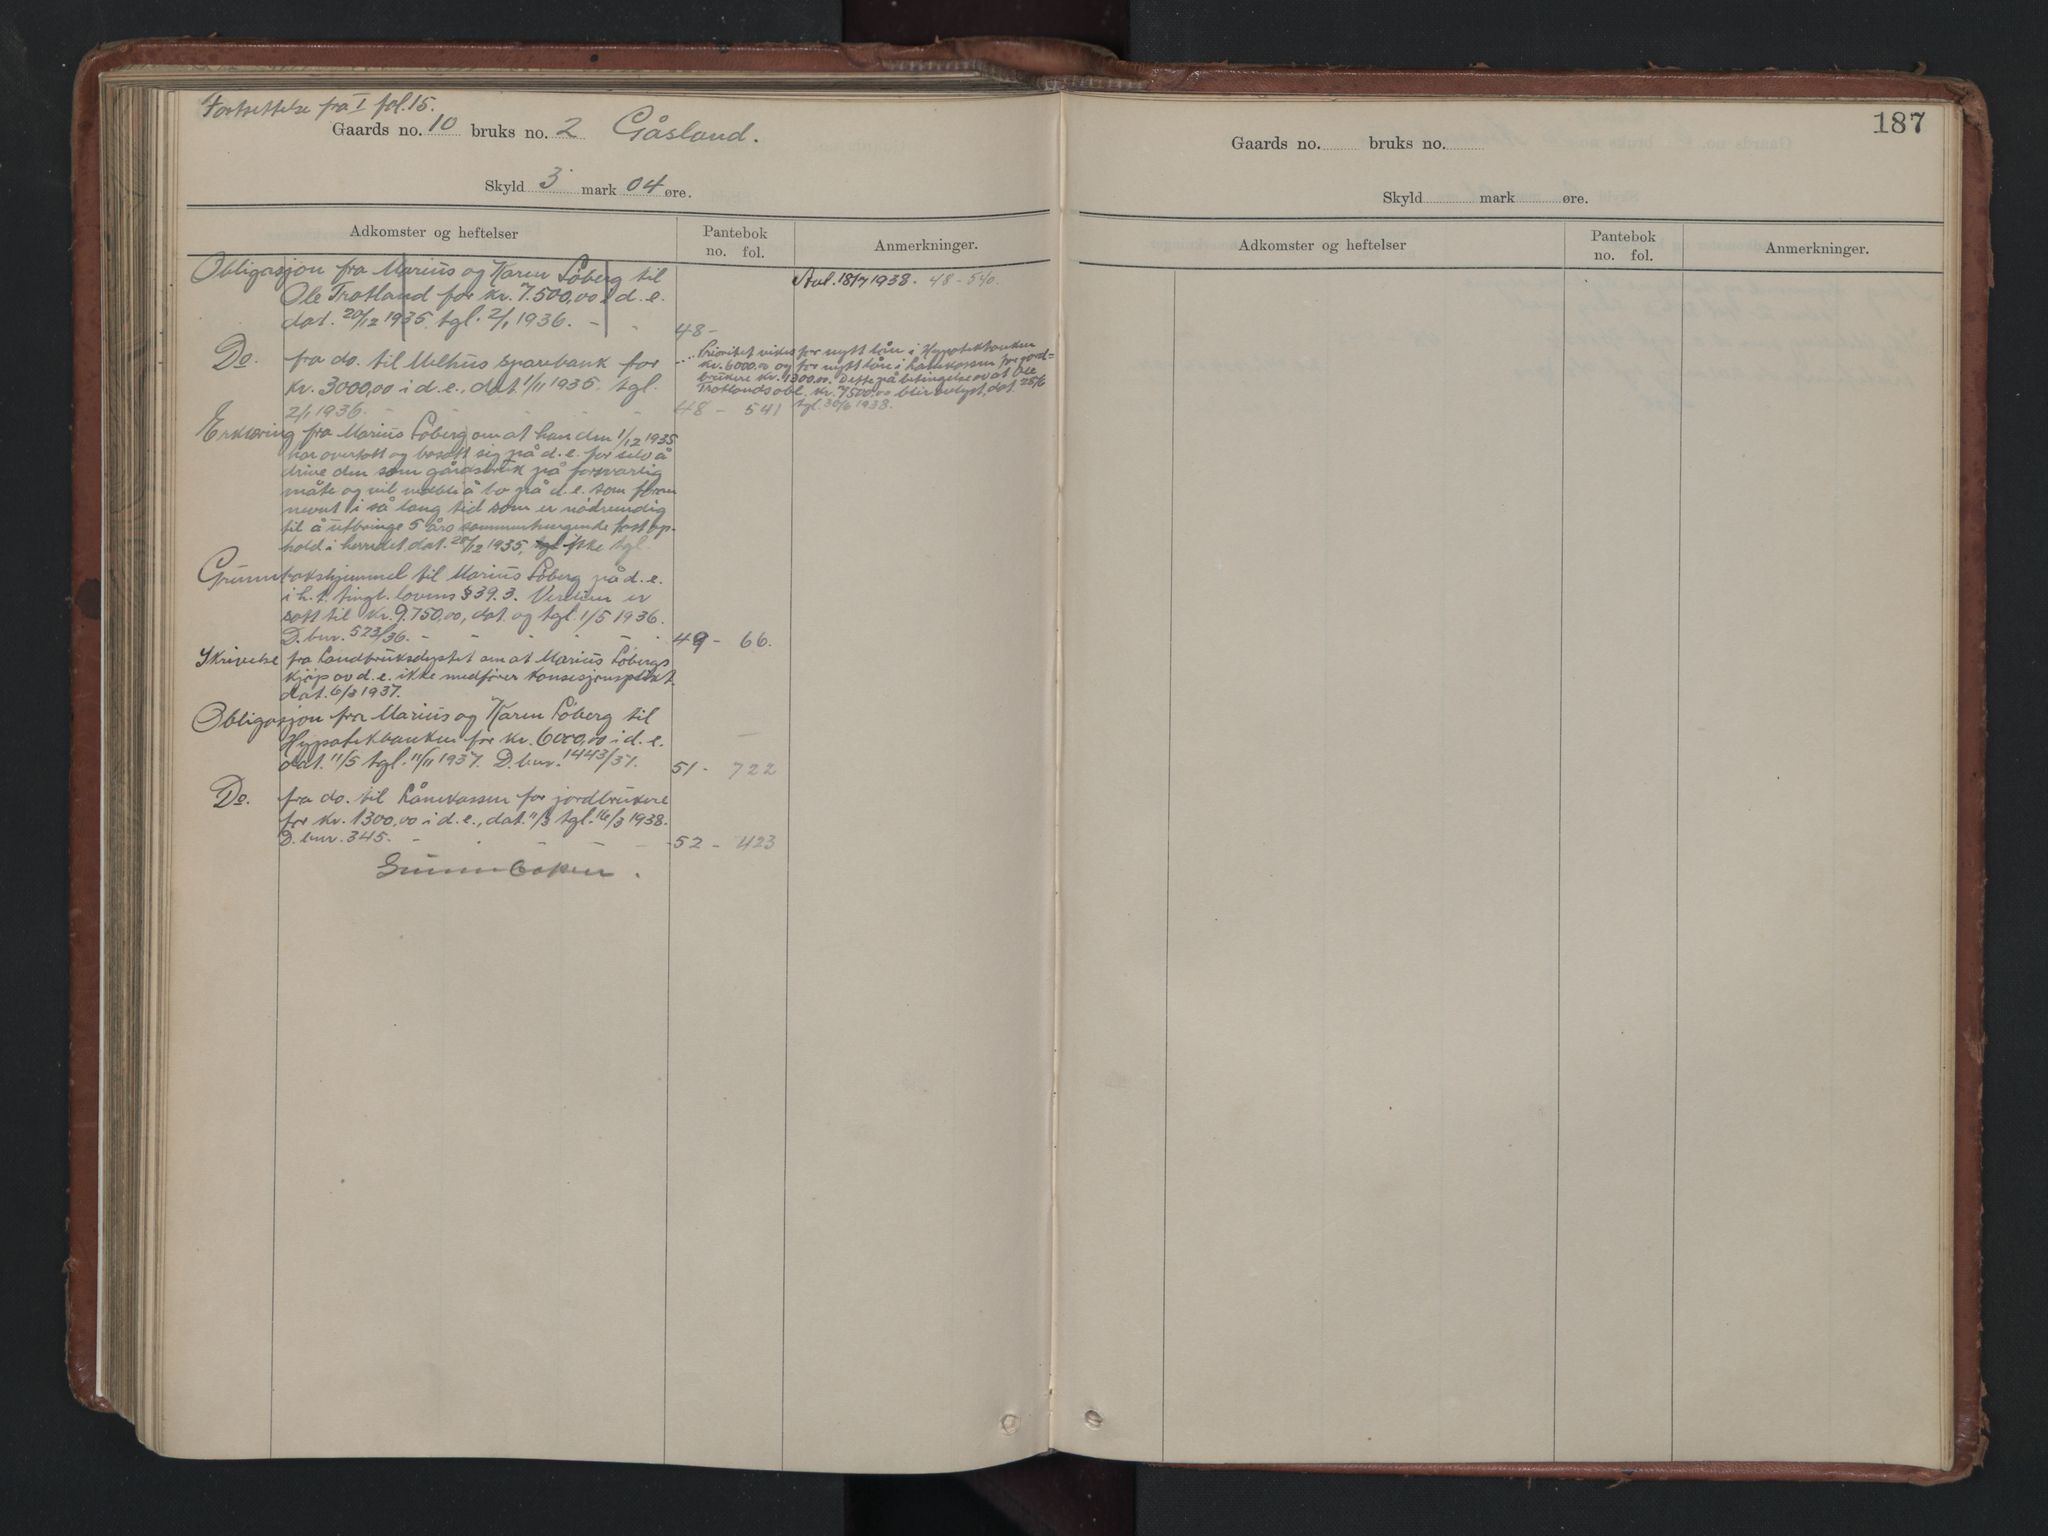 Fortsettelse fra I fol. 15.
Gaards no. 10 bruks no. 2 Gåsland.
Skyld 3 mark 04 øre.
Adkomster og heftelser
Pantebok
no. fol.
Anmerkninger.
Obligasjon fra Marius og Karen Löberg til
Ole Trotland for kr. 7.500,00 i d.e.
dat. 20/12 1935, tgl. 2/1 1936. - -
48 -
Avl. 18/7 1938. 48 - 540.
Do. fra do. til Melhus sparebank for
kr. 3000,00 i d.e., dat. 1/11 1935 tgl.
2/1 1936.
48 - 541
Prioritet vikes for nytt lån i Hypotekbanken
kr. 6000.00 og for nytt lån i Lånekassen for jord-
brukere kr. 1300.00. Dette på betingelse av at Ole
Trotlands obl. kr. 7500,00 blir avlyst, dat. 25/6
tgl. 30/6 1938.
Erklæring fra Marius Löberg om at han den 1/12 1935
har overtatt og bosatt sig på d.e. for selv å
drive den som gårdsbruk på forsvarlig
måte og vil vedbli å bo på d.e. som foran
nevnt i så lang tid som er nödvendig
til å utbringe 5 års sammenhengende fast op-
hold i herredet, dat. 28/12 1935, tgl ikke tgl.
Grunnbokshjemmel til Marius Löberg på d.e.
i h. t. tingl. lovens § 39.3. Verdien er
satt til kr. 9.750,00, dat. og tgl. 1/5 1936.
D. bnr. 523/36. - - - - -
49 - 66.
Skrivelse fra Landbruksdeptet om at Marius Löbergs
kjöp av d.e. ikke medförer konsesjonsplikt
dat. 6/3 1937.
Obligasjon fra Marius og Karen Löberg til
Hypotekbanken for kr. 6000,00 i d.e.
dat. 11/5 tgl. 11/11 1937. D. bnr. 1443/37.
51 - 722
Do. fra do. til Lånekassen for jordbrukere
for kr. 1300,00 i d.e., dat. 11/3 tgl. 16/3 1938.
D. bnr. 345.
52 - 423
Grunnboken.
187
Gaards no. bruks no.
Skyld mark øre.
Adkomster og heftelser
Pantebok
no. fol.
Anmerkninger.